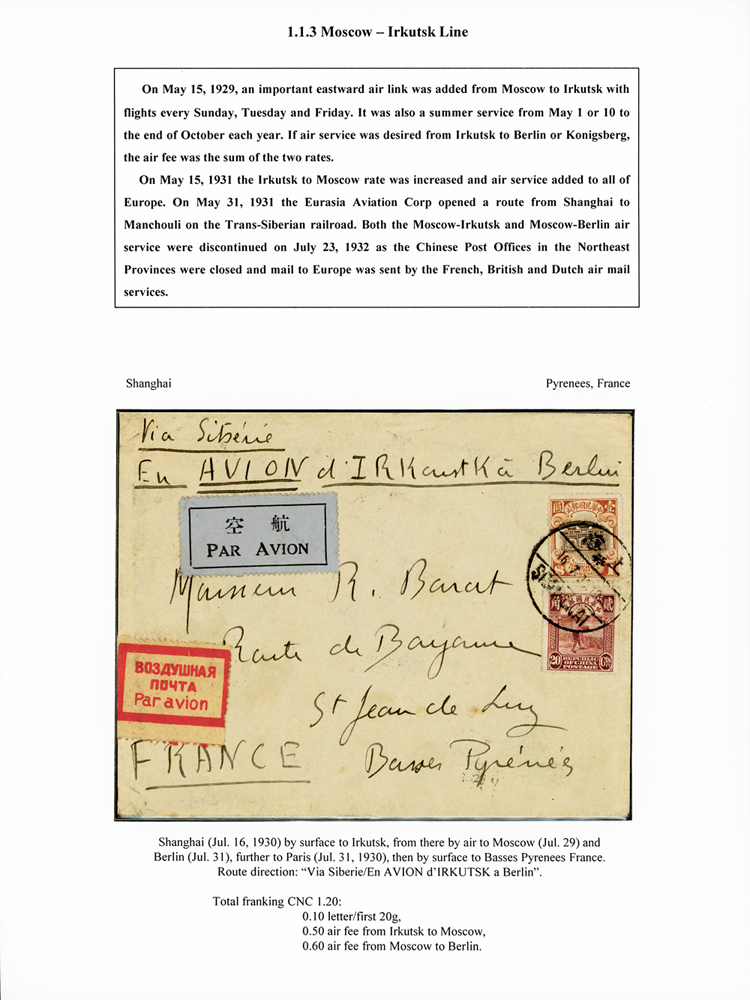 1.1.3 Moscow – Irkutsk Line
On May 15, 1929, an important eastward air link was added from Moscow to Irkutsk with
flights every Sunday, Tuesday and Friday. It was also a summer service from May 1 or 10 to
the end of October each year. If air service was desired from Irkutsk to Berlin or Konigsberg,
the air fee was the sum of the two rates.
On May 15, 1931 the Irkutsk to Moscow rate was increased and air service added to all of
Europe. On May 31, 1931 the Eurasia Aviation Corp opened a route from Shanghai to
Manchouli on the Trans-Siberian railroad. Both the Moscow-Irkutsk and Moscow-Berlin air
service were discontinued on July 23, 1932 as the Chinese Post Offices in the Northeast
Provinces were closed and mail to Europe was sent by the French, British and Dutch air mail
services.
Shanghai
Pyrenees, France
Via Sibérie
En AVION d'IRKoustK à Berlin
空 航
PAR AVION
Monsieur R. Barat
Route de Bayonne
ВОЗДУШНАЯ
ПОЧТА
Par avion
St Jean de Luz
FRANCE
Basses Pyrénées
角 貳
20 REPUBLIC OF CHINA POSTAGE Cts
Shanghai (Jul. 16, 1930) by surface to Irkutsk, from there by air to Moscow (Jul. 29) and
Berlin (Jul. 31), further to Paris (Jul. 31, 1930), then by surface to Basses Pyrenees France.
Route direction: “Via Siberie/En AVION d’IRKUTSK a Berlin”.
Total franking CNC 1.20:
0.10 letter/first 20g,
0.50 air fee from Irkutsk to Moscow,
0.60 air fee from Moscow to Berlin.